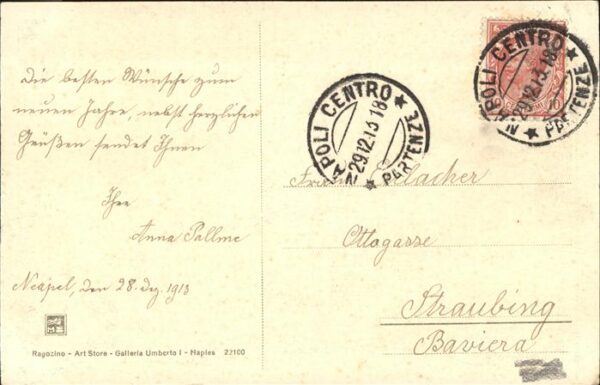 Die besten Wünsche zum
neuen Jahre, nebst herzlichen
Grüßen sendet Ihnen
Ihre
Anna Pallme
Neapel, den 28. Dez. 1913
Ragozino - Art Store - Galleria Umberto I - Naples 22100
NAPOLI CENTRO
29.12.13 18
PARTENZE
NAPOLI CENTRO
29.12.13 18
PARTENZE
10
Ottogasse
Straubing
Baviera